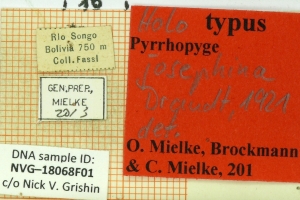 Rio Songo
Bolivia 750 m
Coll. Fassl
GEN.PREP.
MIELKE
2013
DNA sample ID:
NVG–18068F01
c/o Nick V. Grishin
Holo typus
Pyrrhopyge
josephina
Draudt 1921
det.
O. Mielke, Brockmann
& C. Mielke, 201